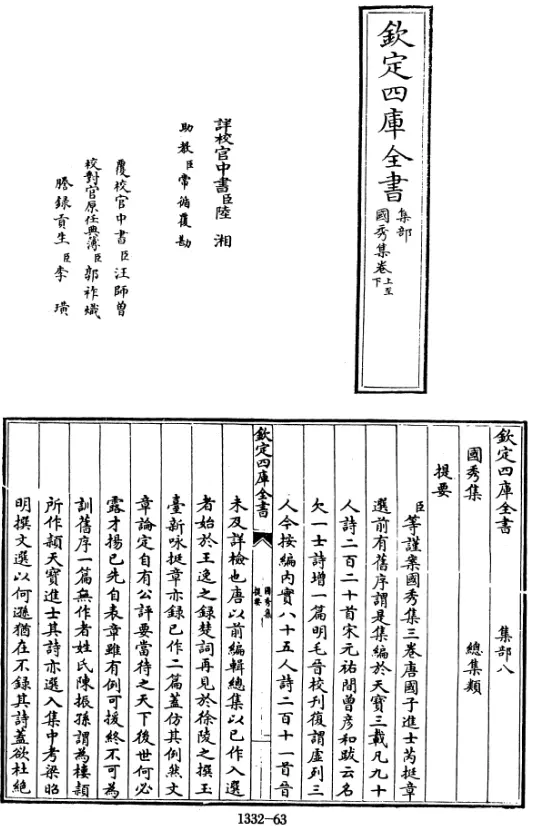 欽定四庫全書
集部
國秀集卷上至下
詳校官中書臣陸湘
助教臣常循覆勘
覆校官中書臣汪師曾
校對官原任典簿臣郭祚熾
謄錄貢生臣李璜
欽定四庫全書 集部八
國秀集 總集類
提要
臣等謹案國秀集三卷唐國子進士芮挺章
選前有舊序謂是集編於天寶三載凡九十
人詩二百二十首宋元祐間曾彥和跋云名
欠一士詩增一篇明毛晉校刋復謂虛列三
人今按編內實八十五人詩二百十一首晉
欽定四庫全書
國秀集
提要
未及詳檢也唐以前編輯總集以已作入選
者始於王逸之録楚詞再見於徐陵之撰玉
臺新咏挺章亦録已作二篇蓋仿其例然文
章論定自有公評要當待之天下後世何必
露才揚已先自表章雖有例可援終不可為
訓舊序一篇無作者姓氏陳振孫謂為樓頴
所作頴天寶進士其詩亦選入集中考梁昭
明撰文選以何遜猶在不録其詩蓋欲杜絶
1332-63